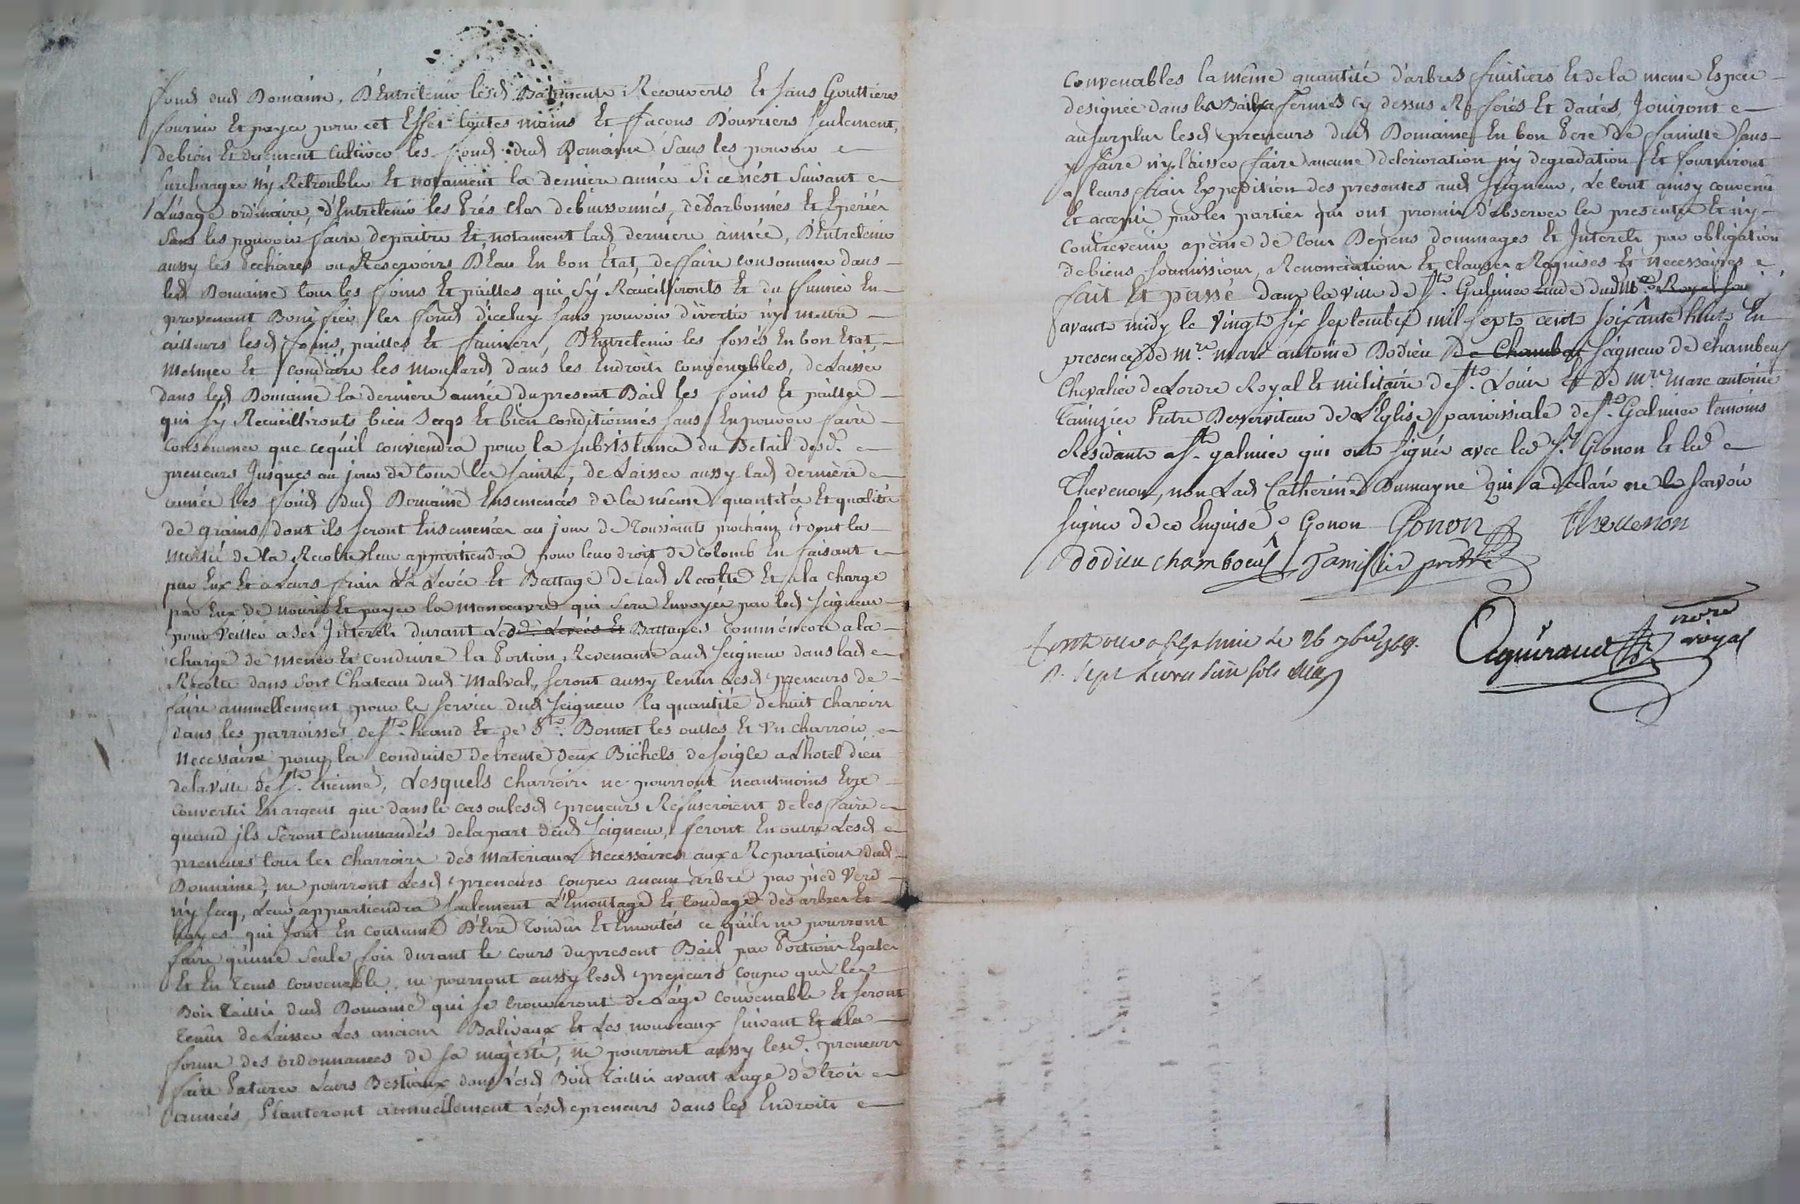 fond dud Domaine, D'Entretenir lesd Batiments Recouverts Et sans Gouttiers
fournir Et payer pour cet Effet toutes mains Et facons D'ouvriers seulement,
de bien Et duement cultiver les fonds dud Domaine sans les pouvoir
surcharger n'y Retroubler Et notament la derniere année si ce n'est suivant
L'usage ordinaire, d'Entretenir les Prés clos debuissonnés, dedarbonnés Et Epierés
sans les pouvoir faire depaitre Et notament lad derniere année, D'Entretenir
aussy les Pechaires ou Reservoirs D'Eau En bon Etat, de faire consommer dans
led Domaine tous les foins Et pailles qui s'y Raceuilliront Et du fumier En
provenant Bonifier les fonds d'iceluy sans pouvoir divertir n'y mettre
ailleurs lesd foins, pailles Et fumiers, D'Entretenir les fossés En bon Etat,
Mener Et conduire les Moulards dans les Endroits convenables, de Laisser
dans led Domaine la derniere année du present Bail les foins Et pailles
qui s'y Recueillironts bien secqs Et bien conditionnés sans En pouvoir faire
consommer que ce qu'il conviendra pour la subsistance du Betail desd.
preneurs Jusques au jour de tous les saints, de Laisser aussy lad derniere
année les fonds dud Domaine Ensemencés de la même quantitée Et qualité
de grains dont ils seront Ensemencés au jour de Toussaints prochain Et dont la
Moitié de la Recolte leur appartiendra pour leur droit de Colomb En faisant
par Eux Et a Leurs frais La Levée Et Battage de lad Recolte Et a la charge
par Eux de nourir Et payer la manoeuvre qui sera Envoyée par led Seigneur
pour veiller a ses Interets durant Battages comme encore a la
charge de mener Et conduire la Portion Revenante aud Seigneur dans lad
Recolte dans son Chateau dud Malval, seront aussy tenus Lesd preneurs de
faire annuellement pour le service dud Seigneur la quantité de huit charoirs
dans les parroisses de St. heand Et de St. Bonnet les oulles Et un charroir
necessaire pour la conduite de trente deux Bichets de soigle a L'hotel dieu
de la ville de St. Etienne, Lesquels charroirs ne pourront neantmoins Etre
convertis En argent que dans le cas ou lesd preneurs Refuseroient de les faire
quand ils seront commandés de la part dud Seigneur, feront En outre Lesd
preneurs tous les charroirs des materiaux necessaires aux Reparations dud
Domaine, ne pourront Lesd preneurs couper aucun arbre par pied verd
n'y secq, Leur appartiendra seulement L'Emoutage Et tondage des arbres Et
hayes qui sont En coutume D'Etre Tondus Et Emoutés ce qu'ils ne pourront
faire qu'une seule fois durant le cours du present Bail par Portions Egales
Et En Tems convenable, ne pourront aussy lesd preneurs couper que les
Bois Taillis dud Domaine qui se trouveront de L'age convenable Et seront
tenus de Laisser Les anciens Balivaux Et Les nouveaux suivant Et a la
forme des ordonnances de sa majesté, ne pourront aussy lesd. preneurs
faire Paturer Leurs Bestiaux dans Lesd Bois Taillis avant L'age de trois
années, Planteront annuellement Lesd preneurs dans les Endroits
convenables la même quantité d'arbres fruitiers Et de la meme Espece
designée dans les Baux a fermes cy dessus Refferés Et dattés, Jouiront
au surplus lesd preneurs dud Domaine En bon Pere de famille sans
y faire n'y laisser faire aucune deterioration n'y degradation Et fourniront
a leurs frais Expedition des presentes aud Seigneur, Le tout ainsy convenu
Et accepté par les parties qui ont promis d'observer les presentes Et n'y
contrevenir a peine de tous Depens dommages Et Interets par obligation
de biens soumissions, Renonciations Et clauses Requises Et necessaires
fait Et passé dans la ville de St. Galmier
avant midy le vingt six septembre mil sept cent soixante huit En
presence de Mre. Marc antoine Dodieu De Chambœuf seigneur de Chambœuf
Chevalier de Lordre Royal Et militaire de St. Louis Et de Mre. Marc antoine
Pretre Desserviteur de L'Eglise parroissiale de St. Galmier temoins
Residants a St. galmier qui ont signé avec led Sr. Gonon Et led
Thevenon, non Lad Catherine Dumayne qui a declaré ne le savoir
signer de ce Enquise Gonon Gonon Thevenon
dodieu chamboeuf prêtre
notre
royal
Controlle a St Galmier Le 26 7bre 1768.
R. Sept Livres